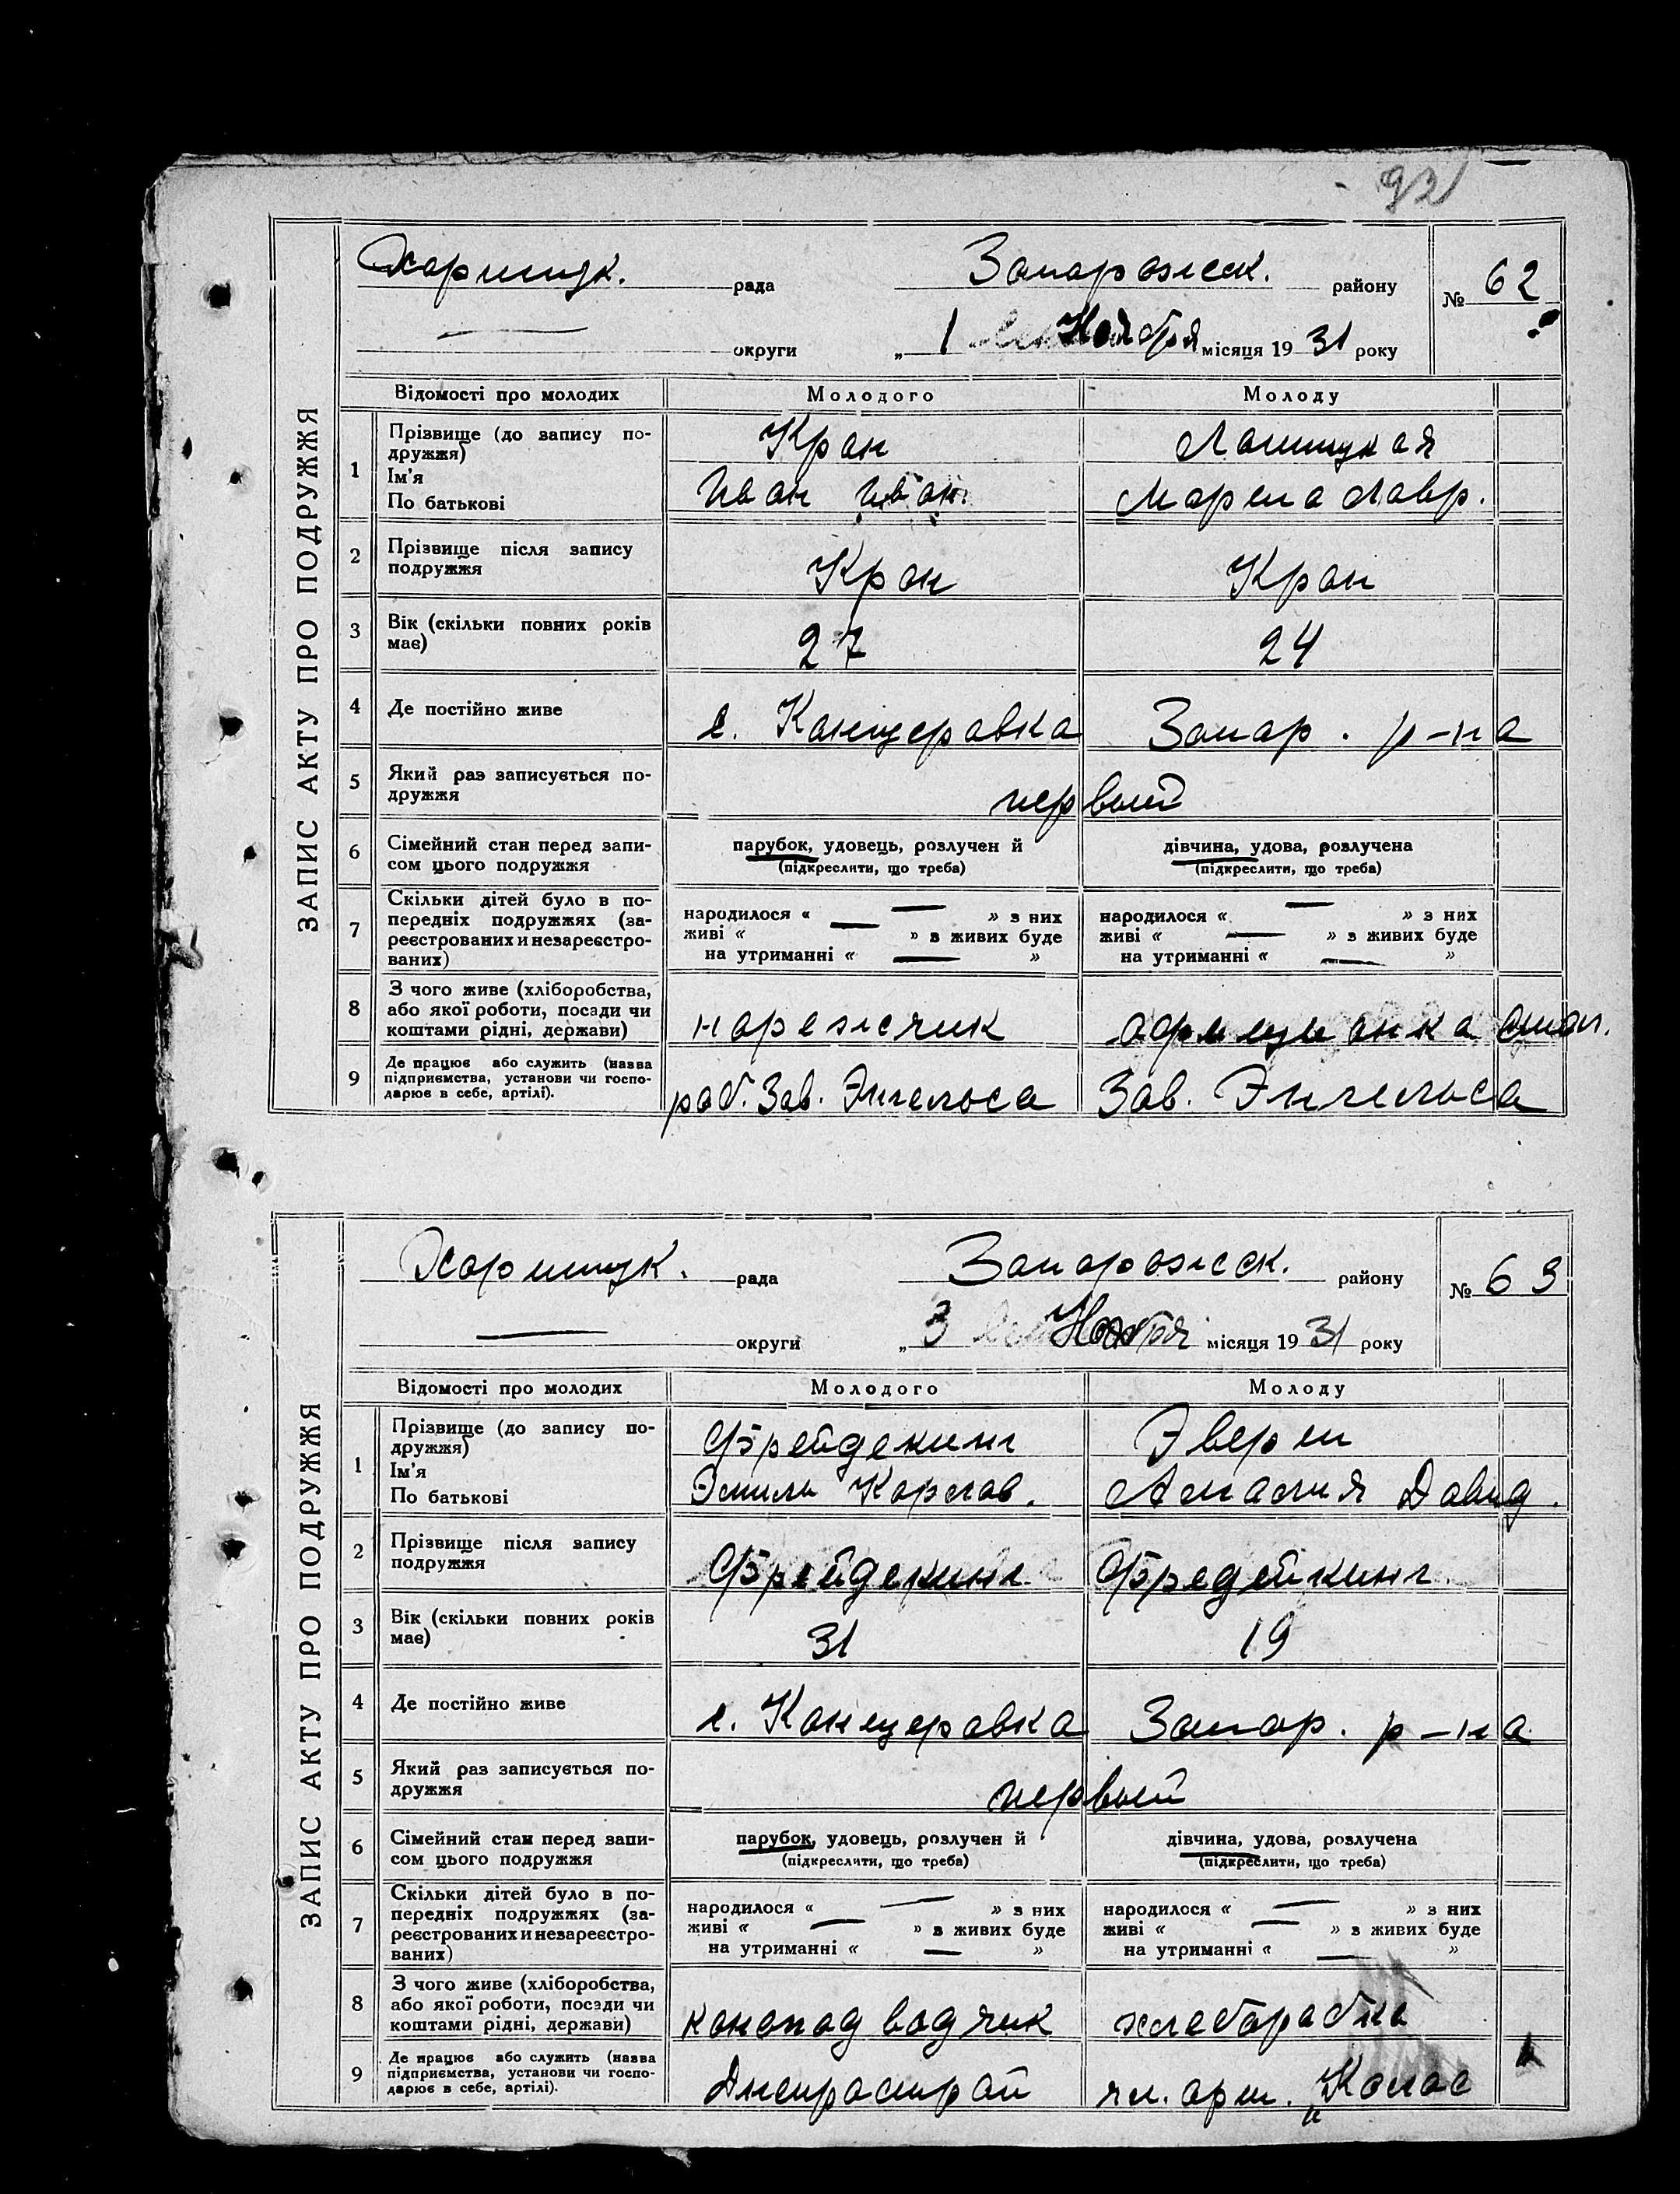 92
ЗАПИС АКТУ ПРО ПОДРУЖЖЯ
Хортицк. рада Запорожск. району № 62
округи „ 1 Ноября місяця 19 31 року
Відомості про молодих Молодого Молоду
1 Прізвище (до запису по-
дружжя)
Ім'я
По батькові
Кран
Иван Иван.
Лапицкая
Мария Лавр.
2 Прізвище після запису
подружжя
Кран Кран
3 Вік (скільки повних років
має)
27 24
4 Де постійно живе с. Канцеровка Запор. р-на
5 Який раз записується по-
дружжя
первый
6 Сімейний стан перед запи-
сом цього подружжя
парубок, удовець, розлучен й
(підкреслити, що треба)
дівчина, удова, розлучена
(підкреслити, що треба)
7 Скільки дітей було в по-
передніх подружжях (за-
реєстрованих и незареєстро-
ваних)
народилося « — » з них
живі « — » з живих буде
на утриманні « — »
народилося « — » з них
живі « — » з живих буде
на утриманні « — »
8 З чого живе (хліборобства,
або якої роботи, посади чи
коштами рідні, держави)
нарезчик
официанка стол.
9 Де працює або служить (назва
підприємства, установи чи госпо-
дарює в себе, артілі).
раб. Зав. Энгельса Зав. Энгельса
ЗАПИС АКТУ ПРО ПОДРУЖЖЯ
Хортицк. рада Запорожск. району № 63
округи „ 3 Ноября місяця 19 31 року
Відомості про молодих Молодого Молоду
1 Прізвище (до запису по-
дружжя)
Ім'я
По батькові
Фрейдекинг
Эмиль Карлов.
Эверт
Амалия Давид.
2 Прізвище після запису
подружжя
Фрейдекинг Фредейкинг
3 Вік (скільки повних років
має)
31 19
4 Де постійно живе с. Канцеровка Запор. р-на
5 Який раз записується по-
дружжя
первый
6 Сімейний стан перед запи-
сом цього подружжя
парубок, удовець, розлучен й
(підкреслити, що треба)
дівчина, удова, розлучена
(підкреслити, що треба)
7 Скільки дітей було в по-
передніх подружжях (за-
реєстрованих и незареєстро-
ваних)
народилося « — » з них
живі « — » з живих буде
на утриманні « — »
народилося « — » з них
живі « — » з живих буде
на утриманні « — »
8 З чого живе (хліборобства,
або якої роботи, посади чи
коштами рідні, держави)
коноподводчик хлеборобка
9 Де працює або служить (назва
підприємства, установи чи госпо-
дарює в себе, артілі).
Днепрострой чл. арт. „Колос